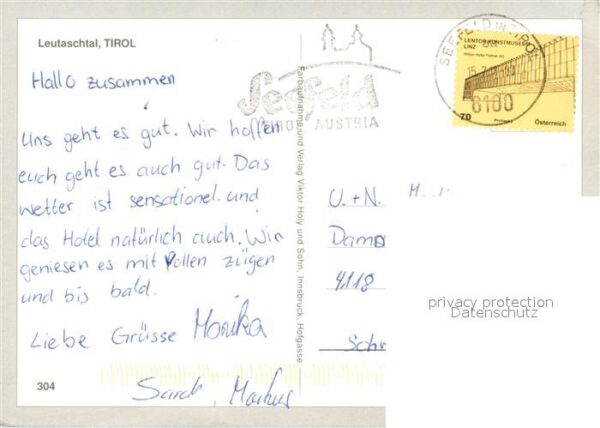 Leutaschtal, TIROL
Hallo zusammen
Uns geht es gut. Wir hoffen
euch geht es auch gut. Das
Wetter ist sensationel. und
das Hotel natürlich auch. Wir
geniesen es mit Vollen zügen
und bis bald.
Liebe Grüsse Monika
Sarah, Markus
304
Farbaufnahme und Verlag Viktor Holy und Sohn, Innsbruck, Hofgasse
Seefeld
TIROL AUSTRIA
SEEFELD IN TIROL
6100
LENTOS KUNSTMUSEUM
LINZ
70
Österreich
U. + N.
4118
privacy protection
Datenschutz